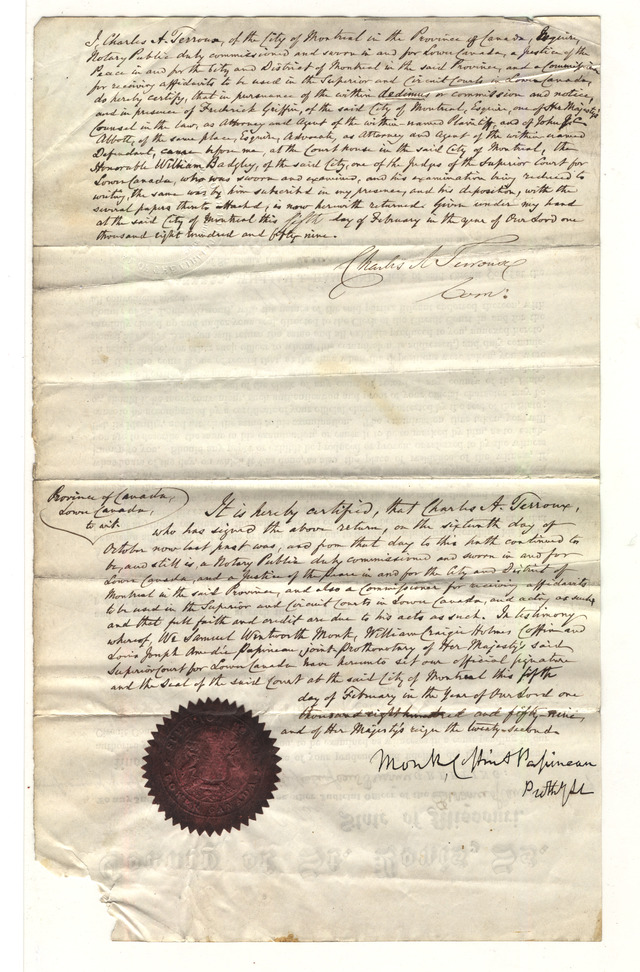 I, Charles A. Terroux, of the City of Montreal in the Province of Canada, Esquire,
Notary Public duly commissioned and sworn in and for Lower Canada, a Justice of the
Peace in and for the City and District of Montreal in the said Province, and a Commissioner
for receiving affidavits to be used in the Superior and Circuit Courts in Lower Canada,
do hereby certify, that in pursuance of the within dedimus or commission and notice,
and in presence of Frederick Griffin, of the said City of Montreal, Esquire, one of Her Majesty's
Counsel in the Law, as Attorney and Agent of the within named Plaintiff, and of John J. C.
Abbott, of the same place, Esquire, Advocate, as Attorney and Agent of the within named
Defendant, came before me, at the Court house in the said City of Montreal, the
Honorable William Badgley, of the said City, one of the Judges of the Superior Court for
Lower Canada, who was sworn and examined, and his examination being reduced to
writing, the same was by him subscribed in my presence, and his deposition, with the
several papers thereto attached, is now herewith returned. Given under my hand
at the said City of Montreal this fifth day of February in the year of Our Lord one
thousand eight hundred and fifty nine.
Charles A Terroux
Com:
Province of Canada,
Lower Canada,
to wit:
It is hereby certified, that Charles A. Terroux,
who has signed the above return, on the sixteenth day of
October now last past was, and from that day to this hath continued to
be, and still is, a Notary Public duly commissioned and sworn in and for
Lower Canada, and a Justice of the Peace in and for the City and District of
Montreal in the said Province, and also a Commissioner for receiving affidavits
to be used in the Superior and Circuit Courts in Lower Canada, and acts, as such
and that full faith and credit are due to his acts as such. In testimony
whereof, We Samuel Wentworth Monk, William Craigie Holmes Coffin and
Louis Joseph Amedée Papineau, joint Prothonotary of Her Majesty's said
Superior Court for Lower Canada have hereunto set our official signature
and the Seal of the said Court at the said City of Montreal this fifth
day of February in the Year of Our Lord one
thousand eight hundred and fifty-nine,
and of Her Majesty's reign the twenty-second.
Monk, Coffin & Papineau